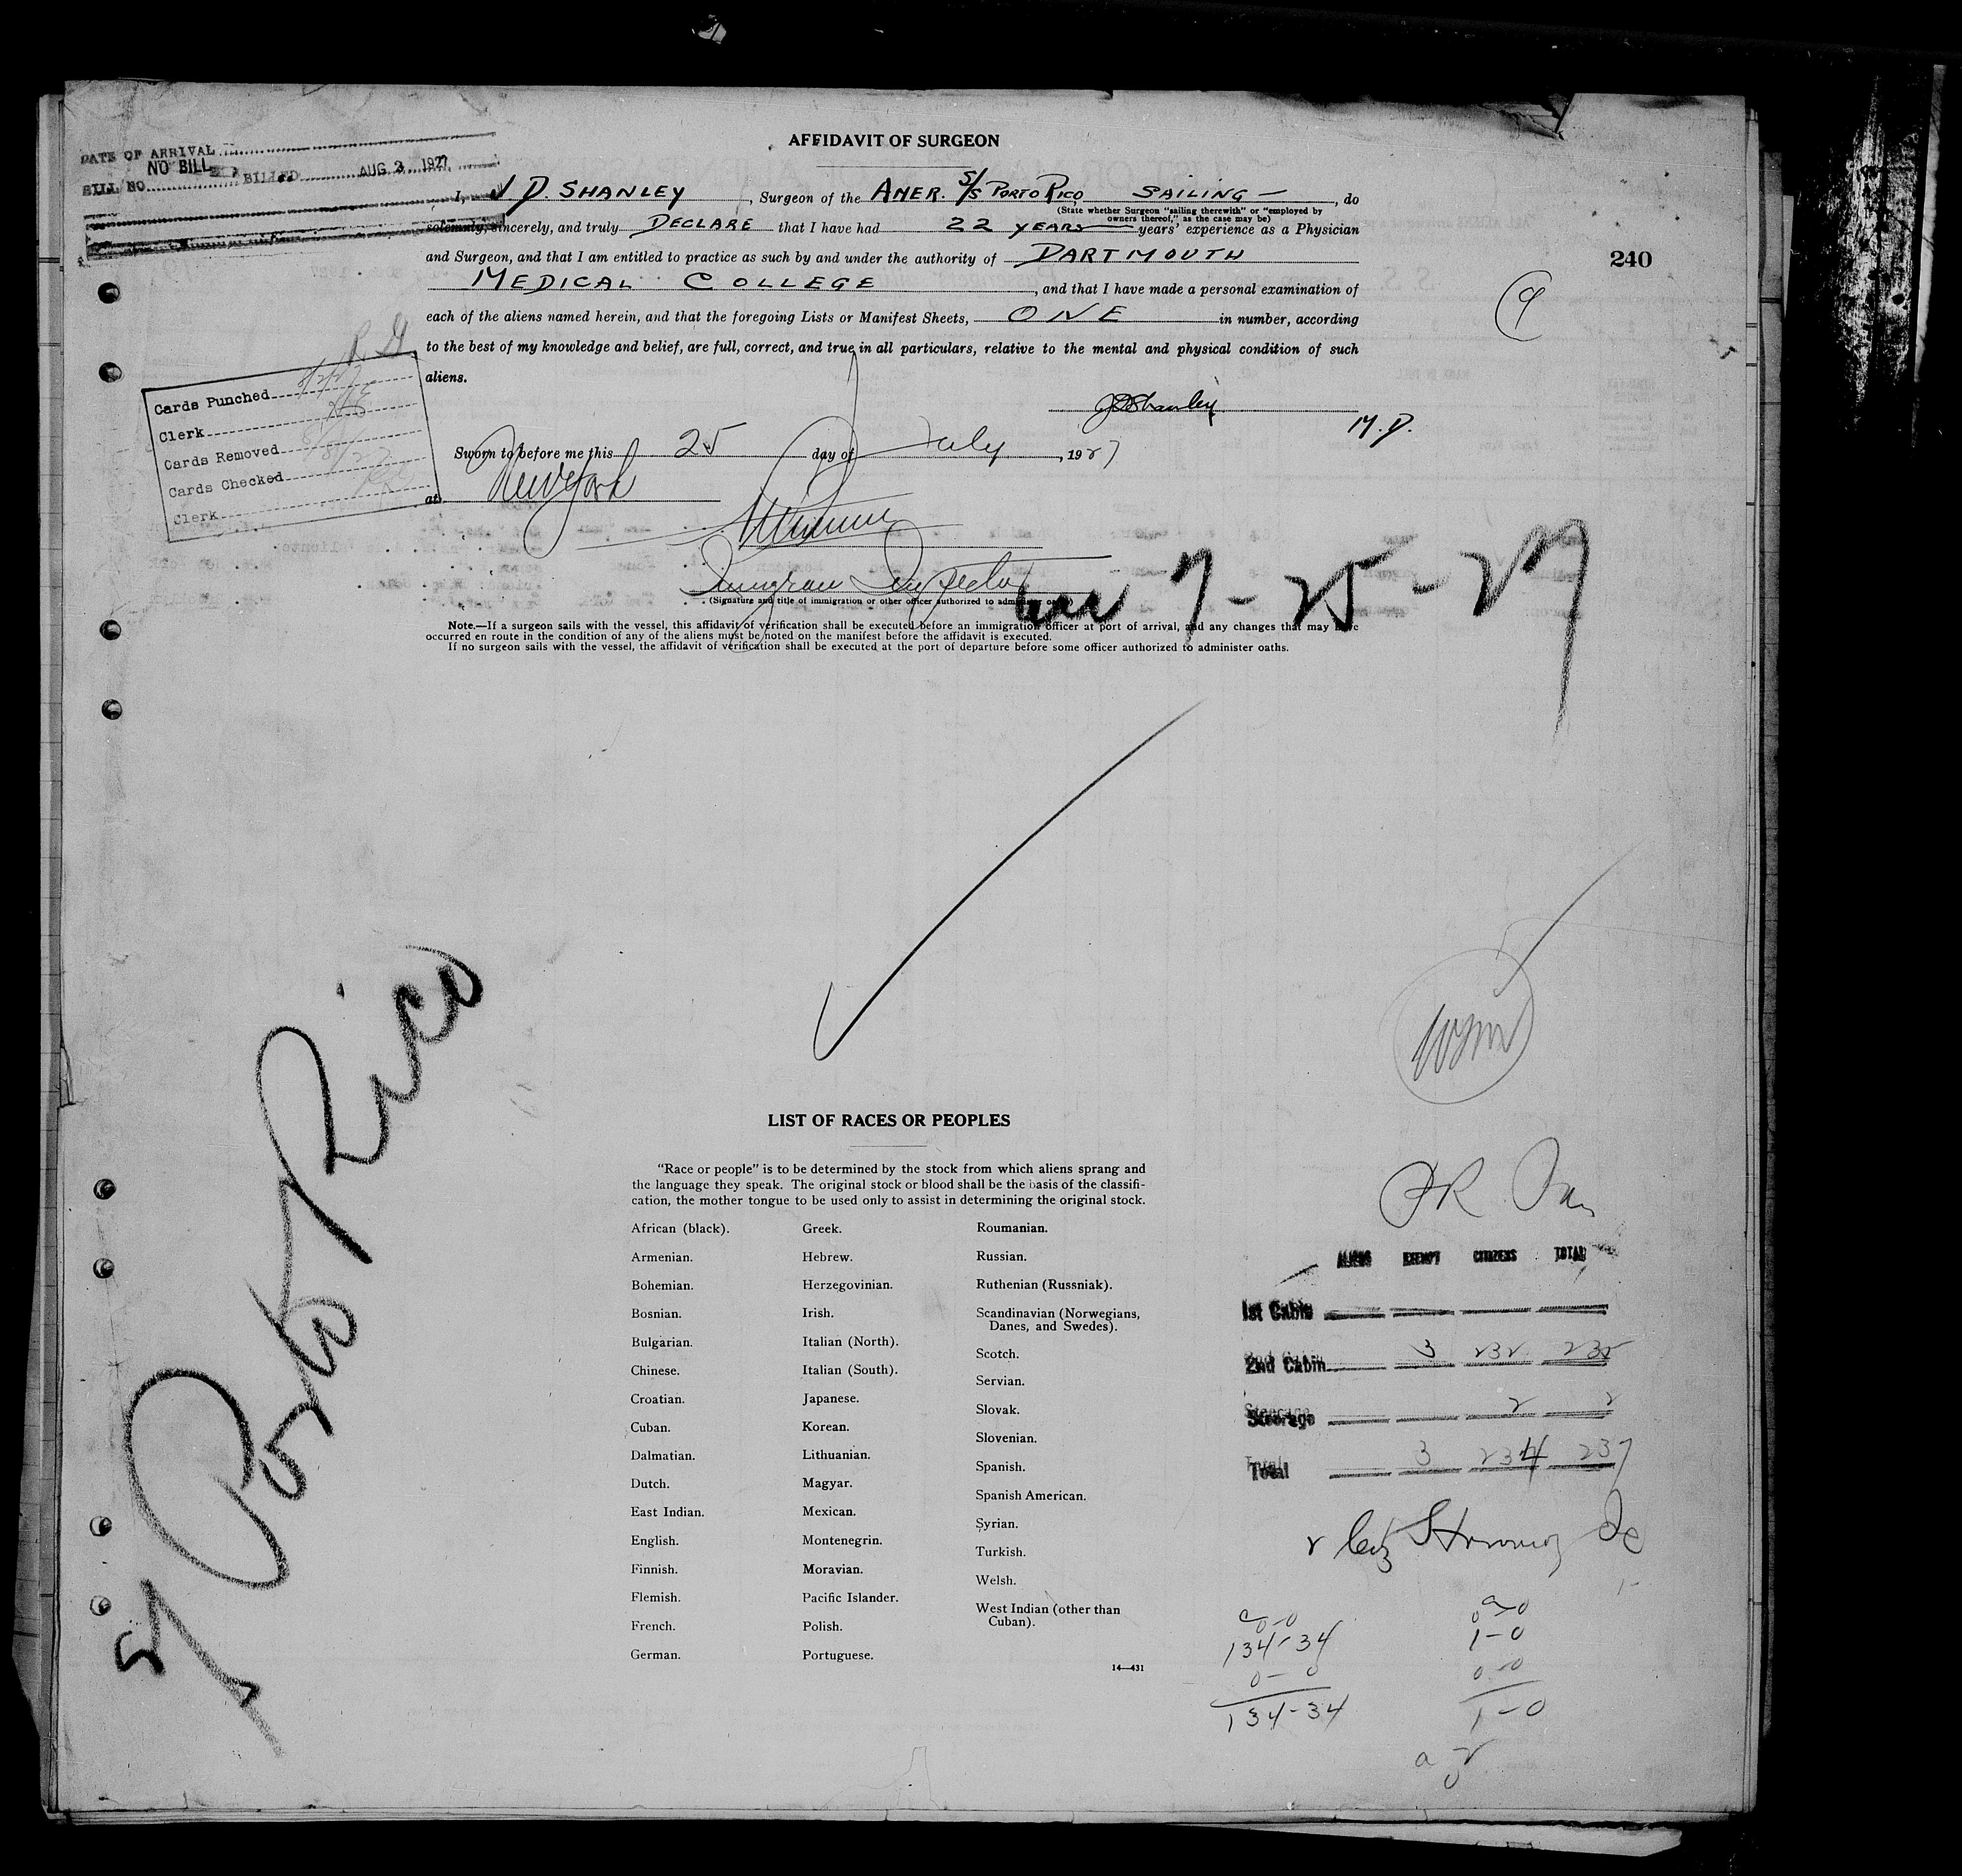 AFFIDAVIT OF SURGEON
DATE OF ARRIVAL
NO BILL
BILL NO. BILLED AUG 3 1927
I, J D. SHANLEY, Surgeon of the AMER. S/S PORTO RICO SAILING —, do
(State whether Surgeon "sailing therewith" or "employed by
owners thereof," as the case may be)
solemnly, sincerely, and truly DECLARE that I have had 22 YEARS years' experience as a Physician
and Surgeon, and that I am entitled to practice as such by and under the authority of DARTMOUTH
MEDICAL COLLEGE, and that I have made a personal examination of
each of the aliens named herein, and that the foregoing Lists or Manifest Sheets, ONE in number, according
to the best of my knowledge and belief, are full, correct, and true in all particulars, relative to the mental and physical condition of such
aliens.
240
9
Cards Punched
Clerk
Cards Removed
Cards Checked
Clerk
JDShanley
M.D.
Sworn to before me this 25 day of July, 1927
at New York
Immigran Inspector
(Signature and title of immigration or other officer authorized to administer oaths)
7-25-27
Note.—If a surgeon sails with the vessel, this affidavit of verification shall be executed before an immigration officer at port of arrival, and any changes that may have
occurred en route in the condition of any of the aliens must be noted on the manifest before the affidavit is executed.
If no surgeon sails with the vessel, the affidavit of verification shall be executed at the port of departure before some officer authorized to administer oaths.
Porto Rico
LIST OF RACES OR PEOPLES
"Race or people" is to be determined by the stock from which aliens sprang and
the language they speak. The original stock or blood shall be the basis of the classifi-
cation, the mother tongue to be used only to assist in determining the original stock.
African (black).
Armenian.
Bohemian.
Bosnian.
Bulgarian.
Chinese.
Croatian.
Cuban.
Dalmatian.
Dutch.
East Indian.
English.
Finnish.
Flemish.
French.
German.
Greek.
Hebrew.
Herzegovinian.
Irish.
Italian (North).
Italian (South).
Japanese.
Korean.
Lithuanian.
Magyar.
Mexican.
Montenegrin.
Moravian.
Pacific Islander.
Polish.
Portuguese.
Roumanian.
Russian.
Ruthenian (Russniak).
Scandinavian (Norwegians,
Danes, and Swedes).
Scotch.
Servian.
Slovak.
Slovenian.
Spanish.
Spanish American.
Syrian.
Turkish.
Welsh.
West Indian (other than
Cuban).
14—431
ALIENS EXEMPT CITIZENS TOTAL
1st Cabin
2nd Cabin 3 232 235
Steerage 2 2
Total 3 234 237
0-0
134-34
0-0
134-34
0-0
1-0
0-0
1-0